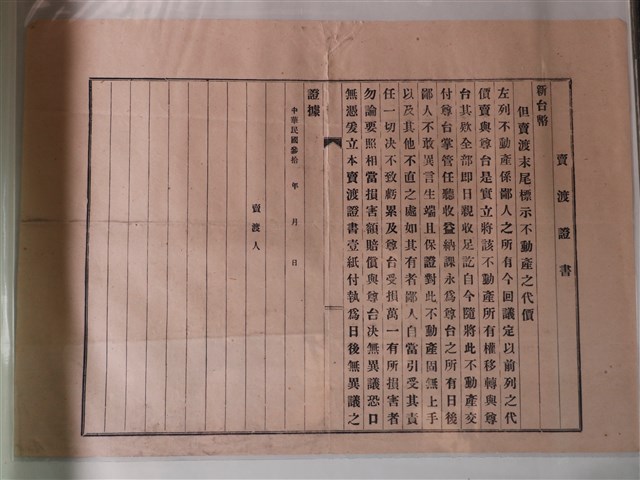 賣渡證書
新台幣
但賣渡末尾標示不動產之代價
左列不動產係鄙人之所有今回議定以前列之代
價賣與尊台是實立將該不動產所有權移轉與尊
台其欵全部即日親收足訖自今隨將此不動產交
付尊台掌管任聽收益納課永為尊台之所有日後
鄙人不敢異言生端且保證對此不動產固無上手
以及其他不直之處如其有者鄙人自當引受其責
任一切決不致虧累及尊台受損萬一有所損害者
勿論要照相當損害額賠償與尊台決無異議恐口
無憑爰立本賣渡證書壹紙付執為日後無異議之
證據
中華民國參拾 年 月 日
賣渡人